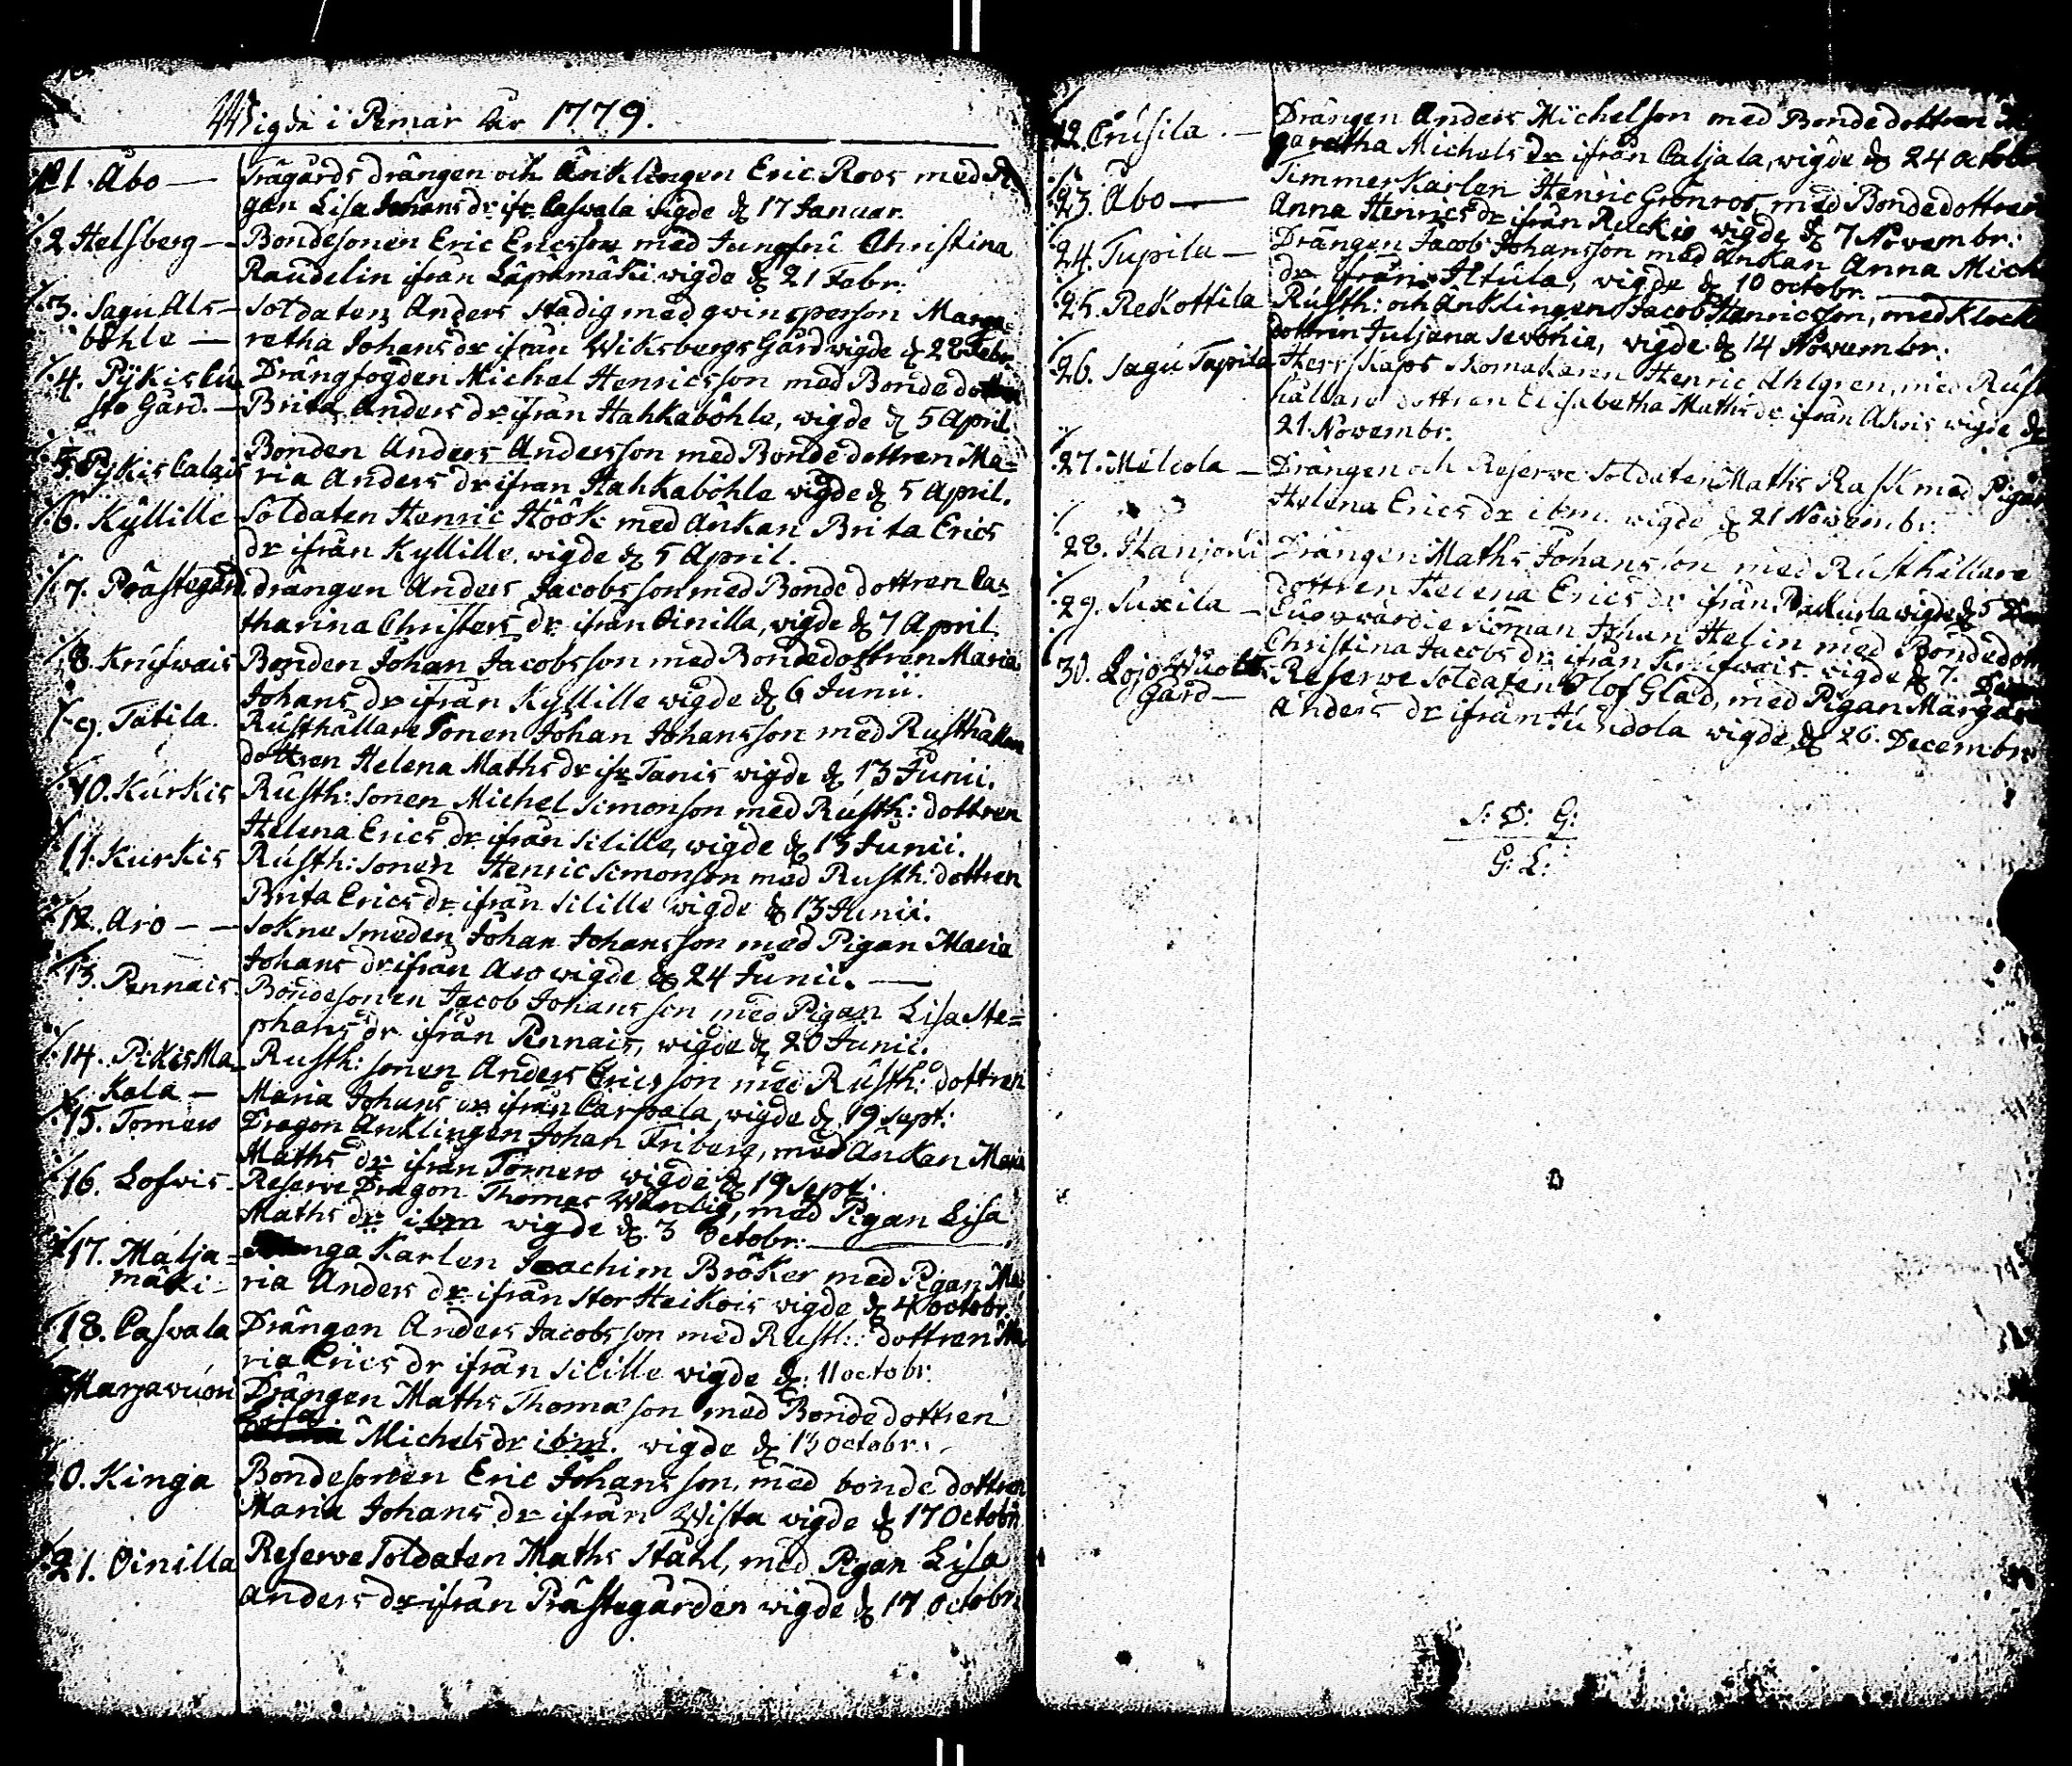 Wigde i Pemar År 1779.
1. Åbo — Trägårds drängen och Änklingen Eric Roos med Pi-
gan Lisa Johans dr ifr Caswala wigde d 17 Januar.
2. Helsberg — Bondesonen Eric Ericsson med Jungfru Christina
Raudelin ifrån Läpämäki wigde d 21 Febr.
3. Sagu Als- Soldaten Anders Stadig med qwinsperson Marga-
böhle — retha Johans dr ifrån Wiksbergs Gård wigde d 28 Febr
4. Pÿkis Cu- Drängfogden Michel Henricsson med Bonde dottren
sto Gård. — Brita Anders dr ifrån Hahkaböhle, wigde d 5 April
5. Pÿkis Calais Bonden Anders Andersson med Bonde dottren Ma-
ria Anders dr ifran Hahkaböhle wigde d 5 April.
6. Kÿllille Soldaten Henric Höök med Änkan Brita Erics
dr ifrån Kyllille. wigde d 5 April.
7. Prästegård. drängen Anders Jacobsson med Bonde dottren Ca-
tharina Christers dr ifrån Oinilla, wigde d 7 April
8. Knifwais Bonden Johan Jacobsson med Bondedottren Maria
Johans dr ifrån Kyllille wigde d 6 Junii.
9. Tatila. Rusthållare Sonen Johan Johansson med Rusthållare
dottren Helena Maths dr ifr Tanis wigde d 13 Junii.
10. Kurkis Rusth: sonen Michel Simonson med Rusth: dottren
Helena Erics dr ifrån Silille, wigde d 13 Junii.
11. Kurkis Rusth: sonen Henric Simonson med Rusth: dottren
Brita Erics dr ifrån Silille wigde d 13 Junii.
12. Aro — — Sokne Smeden Johan Johansson med Pigan Maria
Johans dr ifrån Aro wigde d 24 Junii. —
13. Pennais. Bondesonen Jacob Johansson med Pigan Lisa Ste-
phans dr ifrån Pennais, wigde d 20 Junii.
14. Pikis Ma- Rusth: sonen Anders Ericsson med Rusth: dottren
kala — Maria Johans dr ifrån Carpala wigde d 19 Sept:
15. Tomero Dragon Änklingen Johan Friberg, med Änkan Maria
Maths dr ifrån Tomero wigde d 19 Sept:
16. Lofwis. Reserve Dragon Thomas Wänlig, med Pigan Lisa
Maths dr ibm wigde d. 3 Octobr:
17. Matja- Karlen Joachim Bröker med Pigan Ma-
mäki — ria Anders dr ifrån Stor Heikois wigde d 4 Octobr.
18. Caswala Drängen Anders Jacobsson med Rusth: dottren Ma
ria Erics dr ifrån Silille wigde d: 11 octobr.
Marjavuori Drängen Maths Thomasson med Bonde dottren
Lisa
Michels dr ibm. wigde d 13 octobr.
0. Kinga Bondesonen Eric Johansson, med bonde dottren
Maria Johans dr ifrån Wista wigde d 17 Octobr
21. Oinilla Reserve Soldaten Maths Ståhl, med Pigan Lisa
Anders dr ifrån Prästegården wigde d 17 Octobr.
22. Crusila. — Drängen Anders Michelson med Bonde dottren
garetha Michels dr ifrån Caljala, wigde d 24 Octobr
23. Åbo — Timmer Karlen Henric Grönroos med Bonde dottren
Anna Henrics dr ifrån Reckio wigde d 7 Novembr:
24. Tupila — Drängen Jacob Johansson med Änkan Anna Mich
dr ifrån Iltula, wigde d 10 octobr.
25. Rekottila Rusth: och Änklingen Jacob Henricsson, med Klock
dottren Juljana Sevonia, wigde d 14 Novembr:
26. Sagu Tapila Herrskaps Skomakaren Henric Ahlgren, med Rust
hållare dottren Elisabetha Maths dr ifrån Akois wigde d
21 Novembr.
27. Melcola — Drängen och Reserve Soldaten Maths Rask med Pigan
Helena Erics dr ibm. wigde d 21 Novembr:
28. Hanjoki Drängen Maths Johansson med Rusthållare
dottren Helena Erics dr ifrån wigde d 5 Dec
29. Suxila — Johan Helin med Bondedott
Christina Jacobs dr ifrån Knifwais wigde d 7. Decem
30. Lojo Reserve Soldaten Olof Glad, med Pigan Margar
Gård — Anders dr ifrån wigde d 26. Decembr.
S: D: G:
G: L: